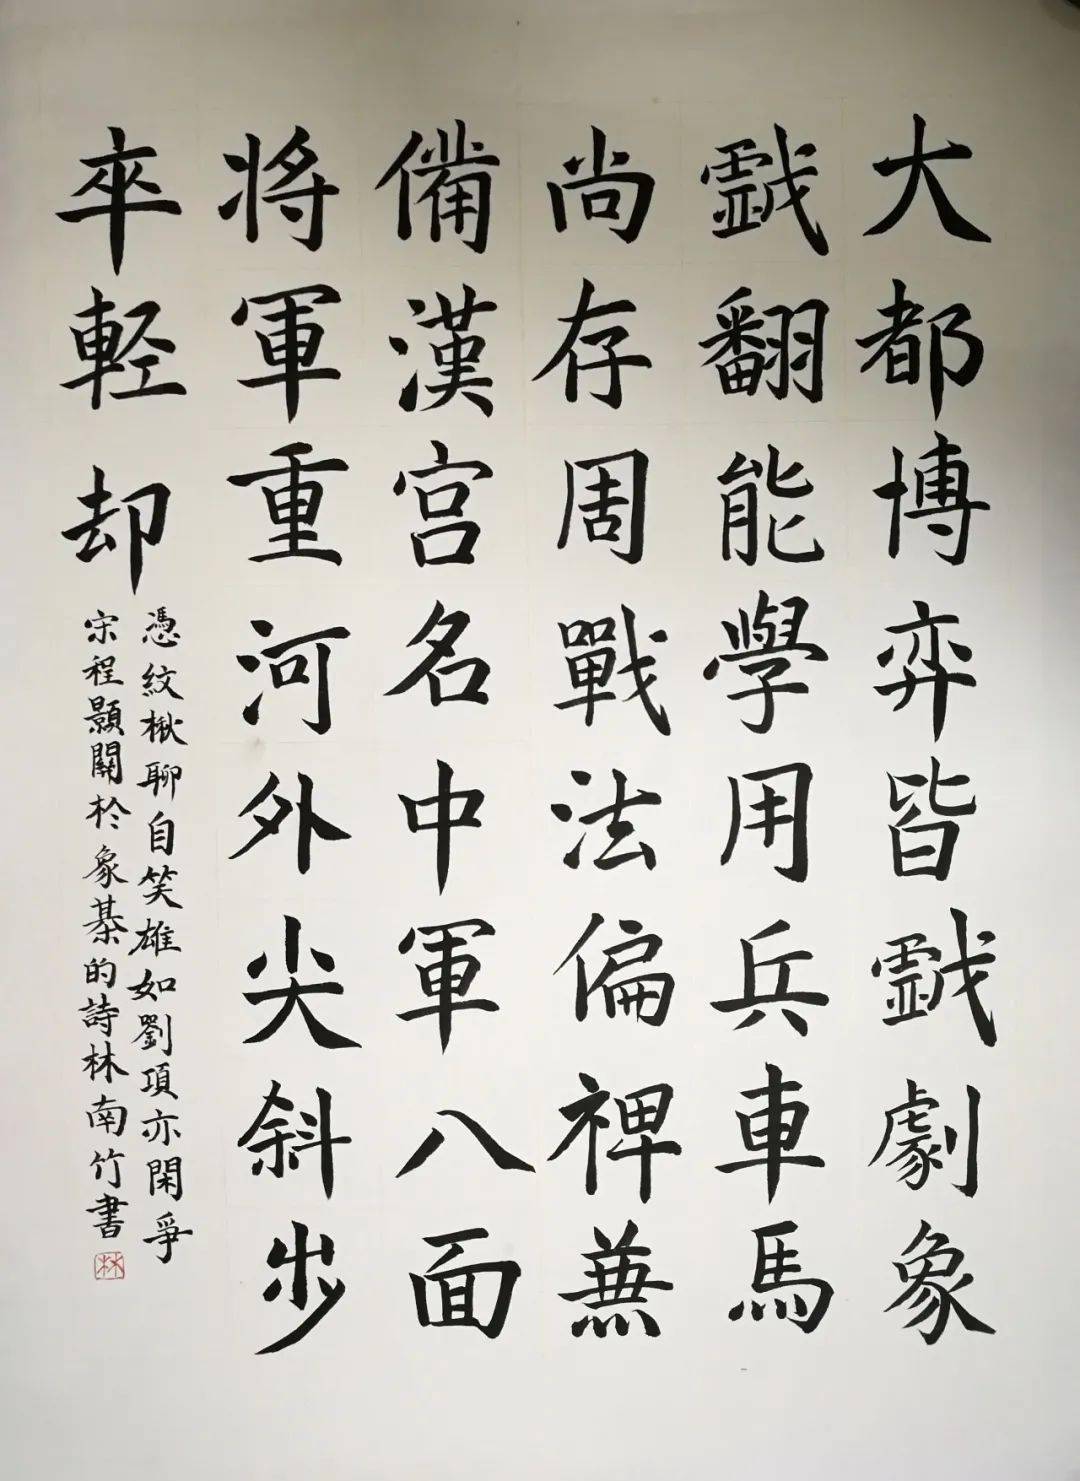 大都博弈皆戲劇象
戲翻能學用兵車馬
尚存周戰法偏裨兼
備漢宫名中軍八面
将軍重河外尖斜步
卒輕却
憑紋楸聊自笑雄如劉項亦閑爭
宋程顥關於象棊的詩林南竹書
林